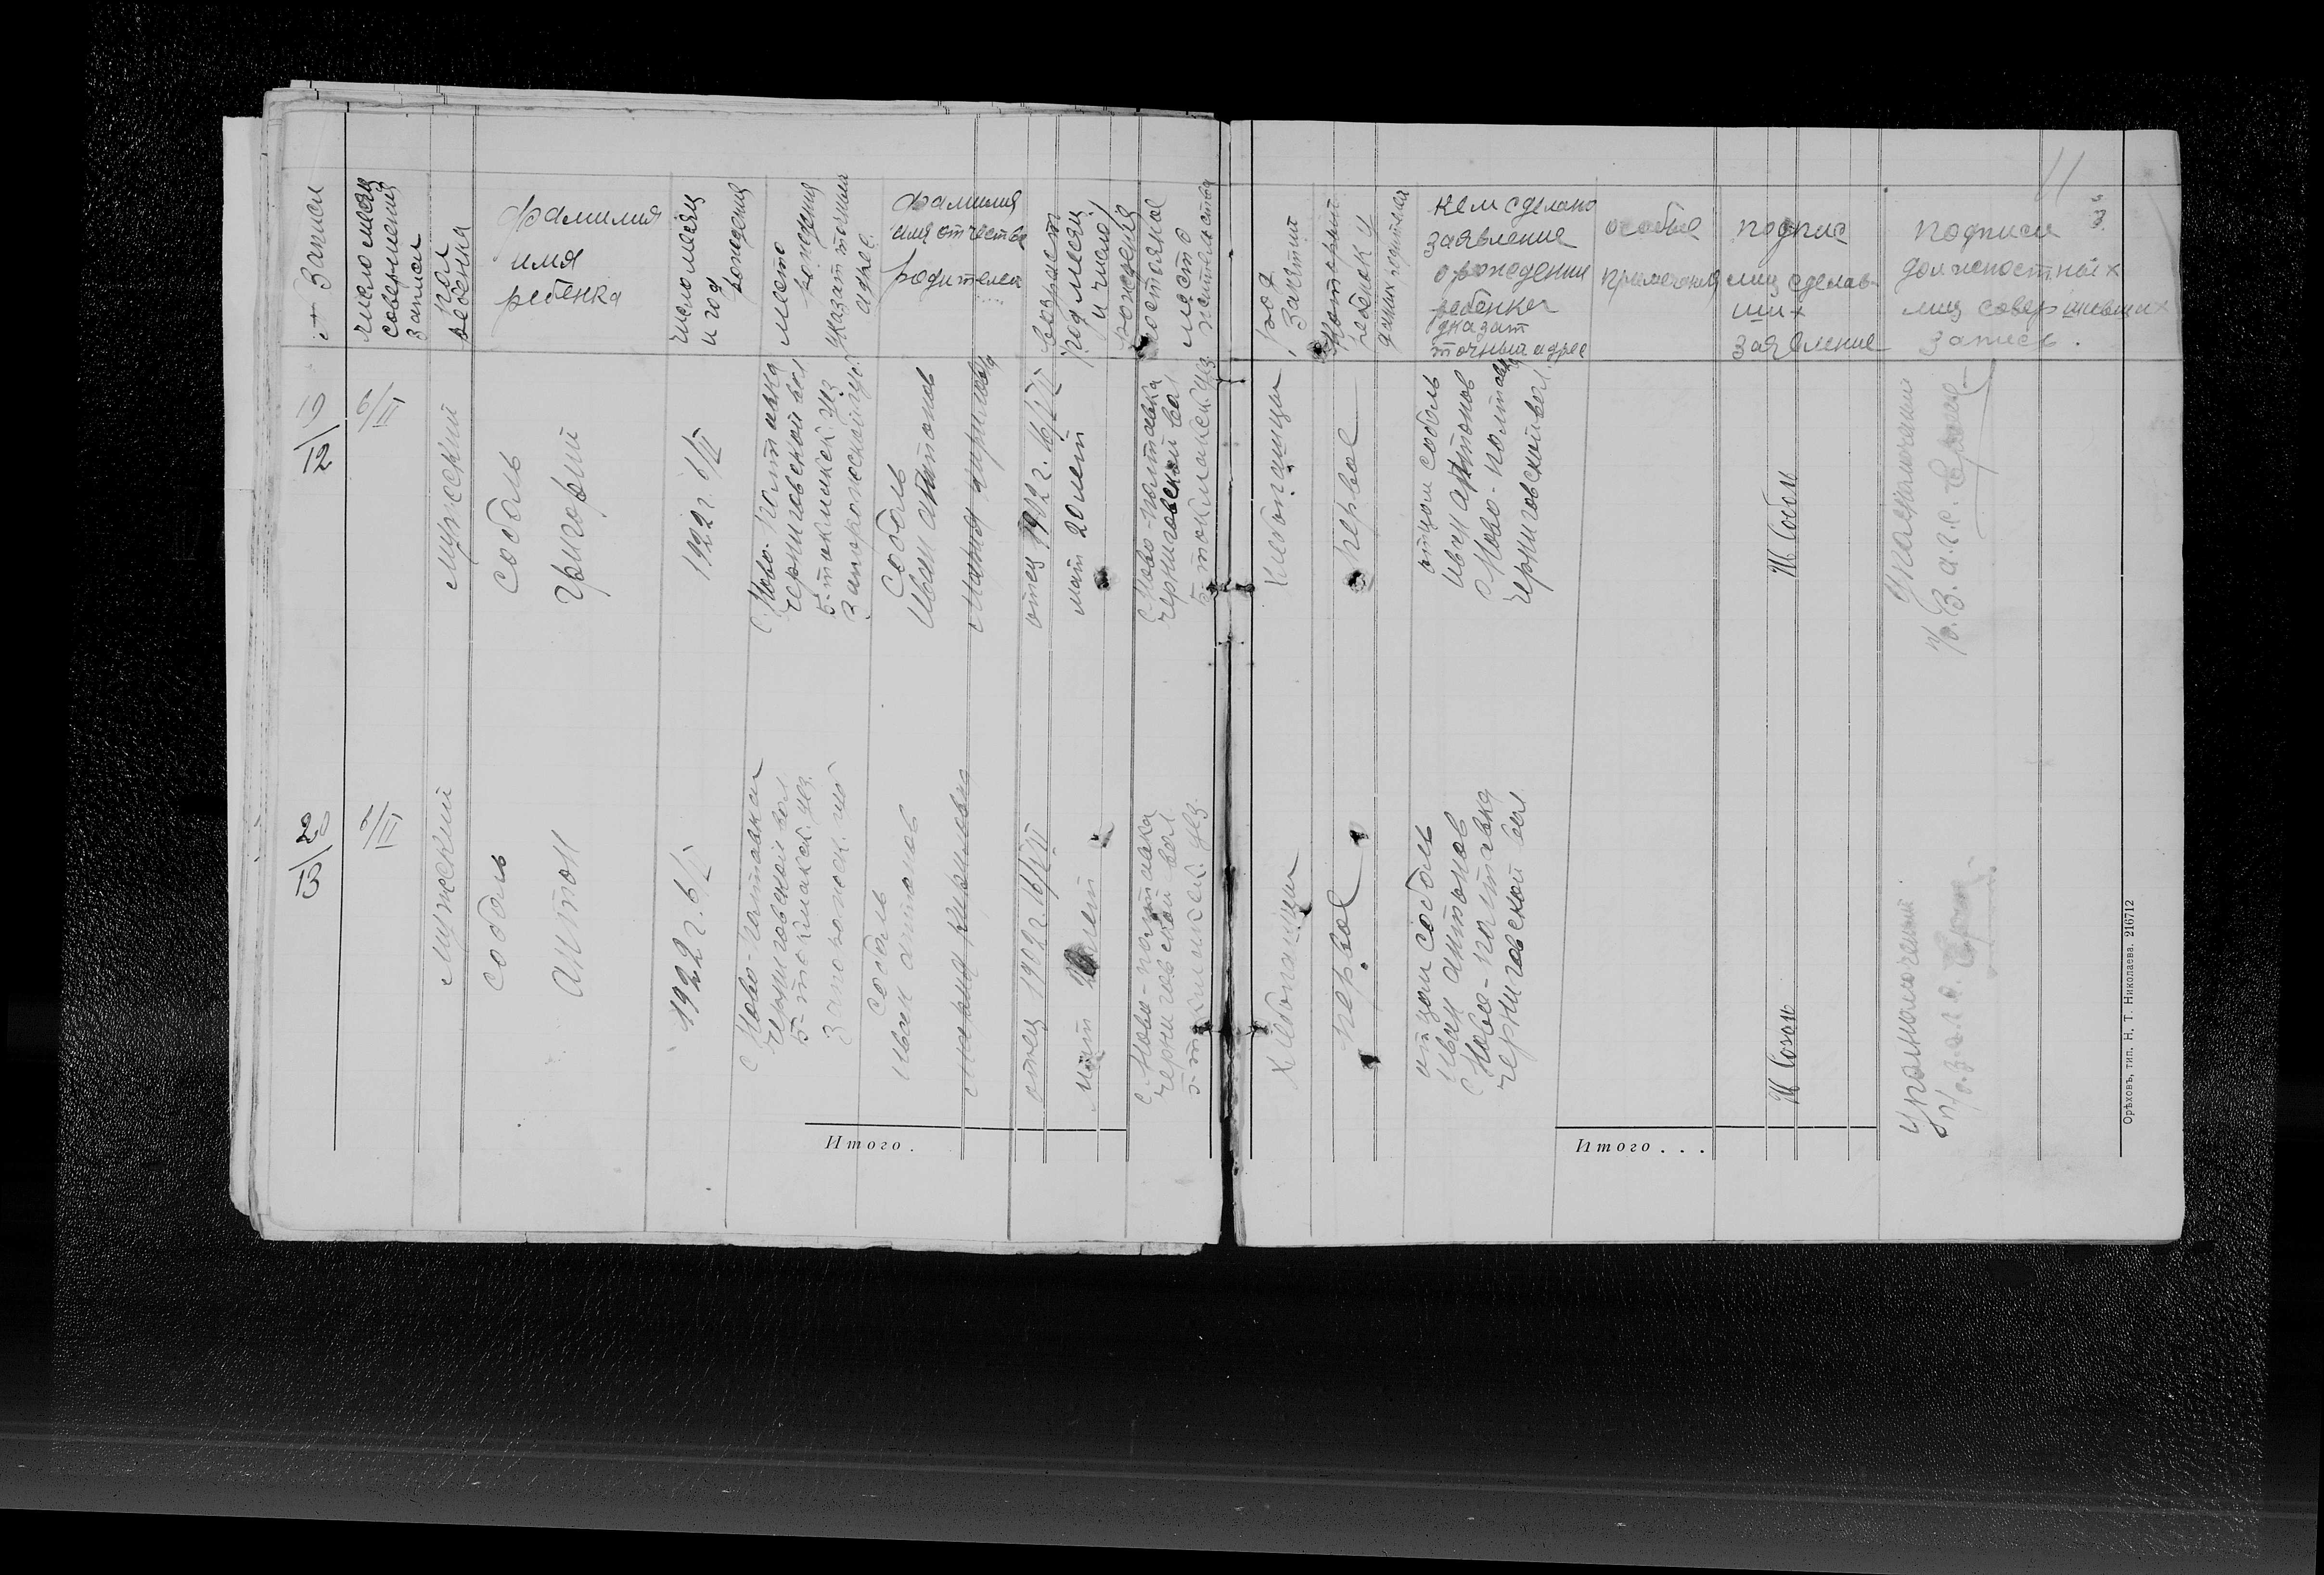 11
3.
№ Записи
число месяц
совершения
записи
пол
ребенка
фамилия
имя
ребенка
число месяц
и год
рождения
место
рождения
указат точный
адрес.
фамилия
имя отчество
родителей
возраст
год месяц
и число
рождения
постоянное
место
жительства
род
занятий
который
ребенок у
данных родителей
кем сделано
заявление
о рождении
ребенка
указат
точный адрес
особые
примечания
подпис
лиц сделав-
ших
заявление
подписи
должностных
лиц совершивших
запись.
19
12
6/II
мужеский
Соболь
Григорий
1922 г. 6/II
с. Ново-Полтавка
черниговской вол
Б-токмакск. уез
Запорожской губ.
Соболь
Иван Антонов
Мария Кирилова
отец 1902 г. 16/VII
мат 20 лет
с. Ново-полтавка
черниговской вол
Б-токмакск. уез
хлебопашцы
первое
отцом соболь
Иван Антонов
с Ново-полтавка
черниговской вол.
И Соболь
Уполномоченный
п/о. З. а. г. с.
20
13
6/II
мужеский
соболь
антон
1922 г. 6/II
с Ново-полтавка
черниговской вол
Б-токмакск. уез.
запорожск. губ
Соболь
Иван антонов
мария кирилова
отец 1902 г. 16/VII
мат 20 лет
с. Ново-полтавка
черниговской вол
Б-токмакск. уез.
хлебопашцы
первое
отцом соболь
Иван антонов
с Ново-полтавка
черниговской вол
Уполномоченный
Итого .
Итого . . .
Орѣховъ, тип. Н. Т. Николаева. 216712